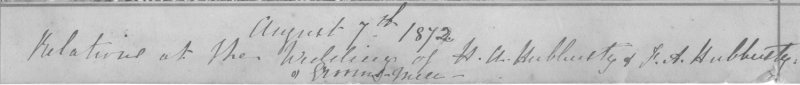 August 7th 1872
Relations at the Wedding of H. A. Hubbersty & F. A. Hubbersty.
" Grooms-men -